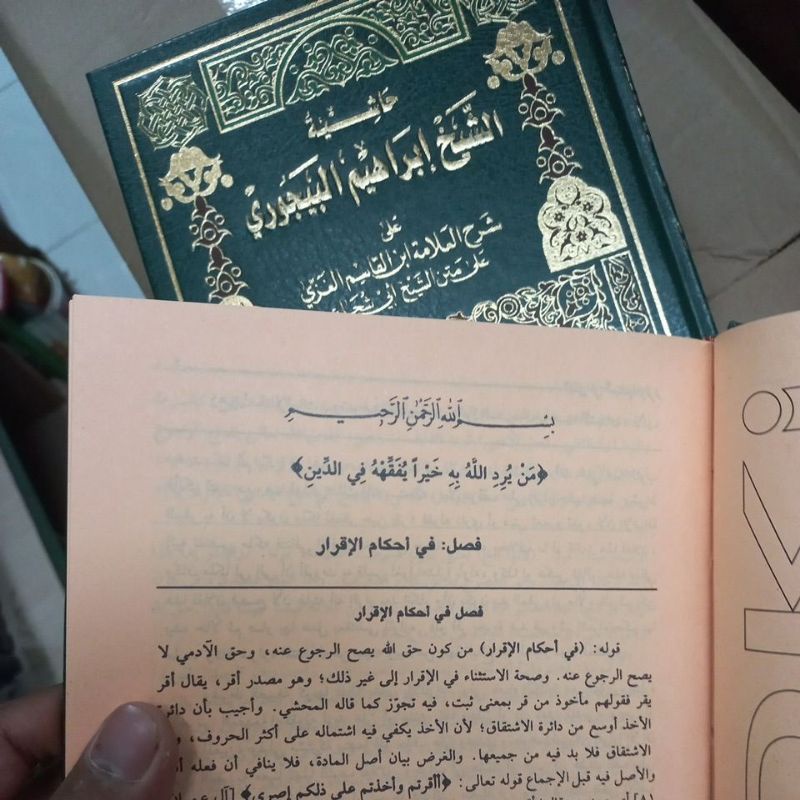 حاشية
الشيخ إبراهيم البيجوري
على
شرح العلامة ابن القاسم الغزي
على متن الشيخ أبي شجاع
بسم الله الرحمن الرحيم
﴿مَنْ يُرِدِ اللَّهُ بِهِ خَيْراً يُفَقِّهْهُ فِي الدِّينِ﴾
فصل: في أحكام الإقرار
فصل في أحكام الإقرار
قوله: (في أحكام الإقرار) من كون حق الله يصح الرجوع عنه، وحق الآدمي لا
يصح الرجوع عنه. وصحة الاستثناء في الإقرار إلى غير ذلك؛ وهو مصدر أقر، يقال أقر
يقر فقولهم مأخوذ من قر بمعنى ثبت، فيه تجوّز كما قاله المحشي. وأجيب بأن دائرة
الأخذ أوسع من دائرة الاشتقاق؛ لأن الأخذ يكفي فيه اشتماله على أكثر الحروف،
الاشتقاق فلا بد فيه من جميعها. والغرض بيان أصل المادة، فلا ينافي أن فعله
والأصل فيه قبل الإجماع قوله تعالى: ﴿أأقرتم وأخذتم على ذلكم إصري﴾